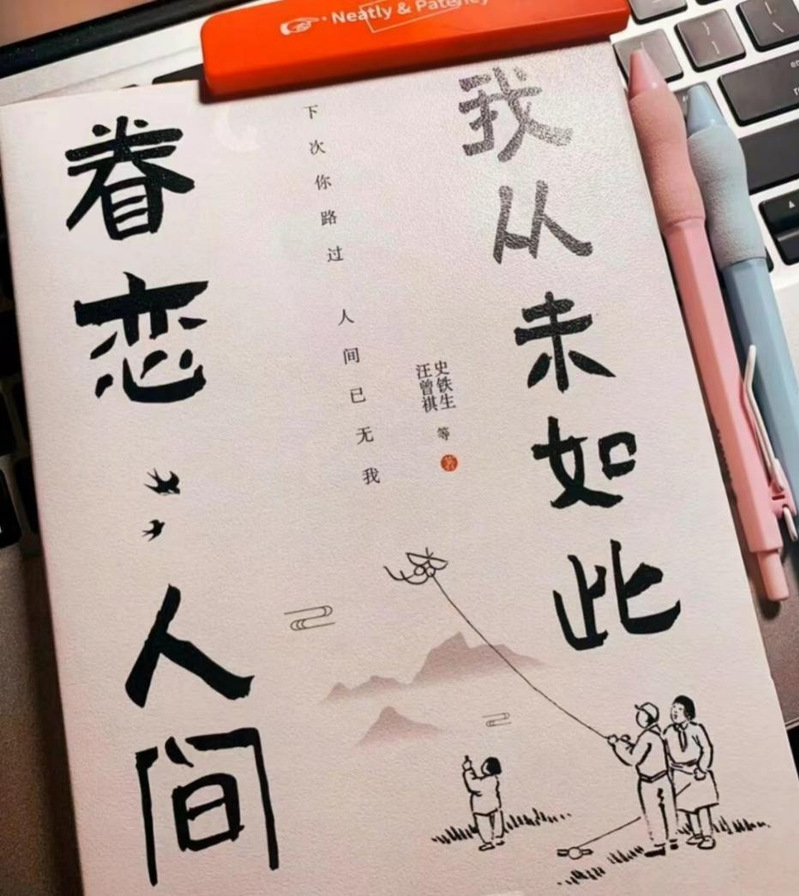 Neatly & Patency
我从未如此
眷恋人间
史铁生
汪曾祺
等
著
下次你路过
人间已无我